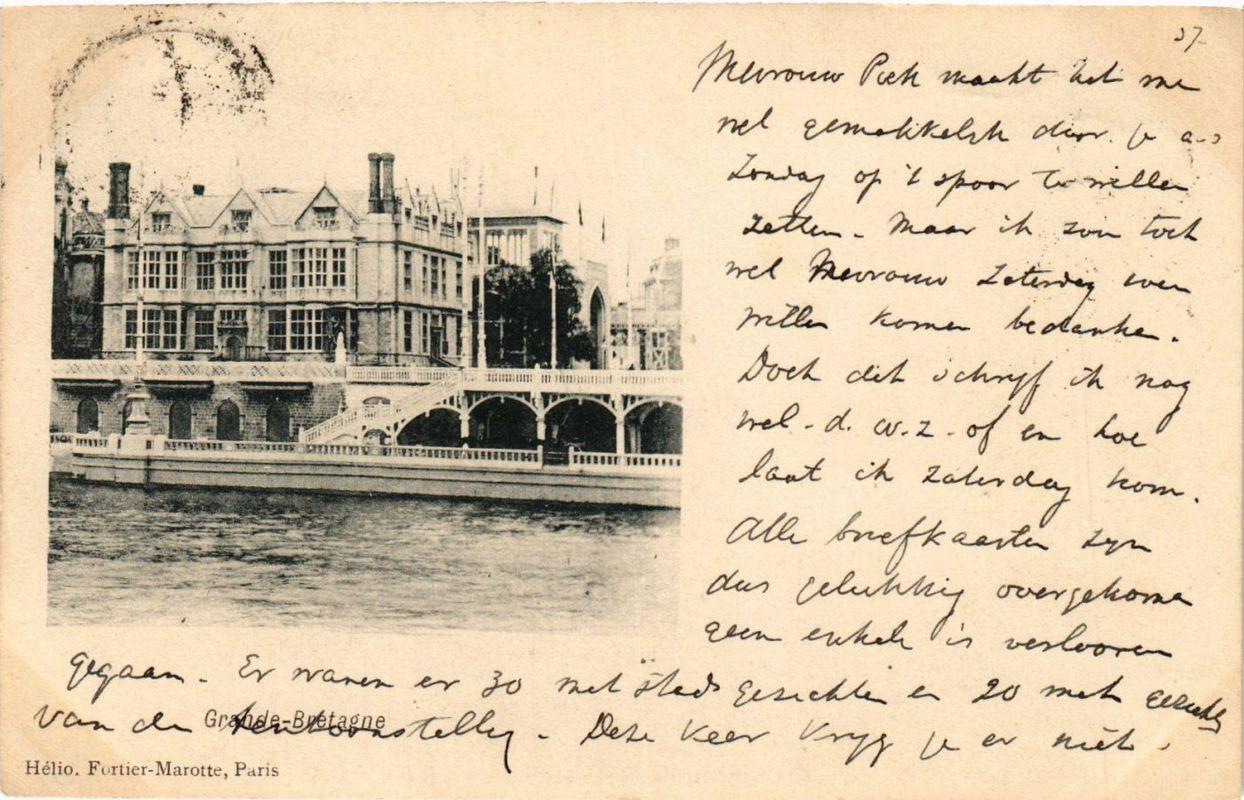 37
Mevrouw Piek maakt het me
wel gemakkelijk door je a.s
Zondag op 't spoor te willen
zetten. Maar ik zou toch
wel Mevrouw Zaterdag even
willen komen bedanken.
Doch dit schryf ik nog
wel - d.w.z. of en hoe
laat ik zaterdag kom.
Alle briefkaarten zyn
dus gelukkig overgekomen
geen enkele is verlooren
gegaan. Er waren er 30 met stads gezichten en 20 met gezichten
van de tentoonstelling. Deze keer kryg je er niet.
Grande-Bretagne
Hélio. Fortier-Marotte, Paris